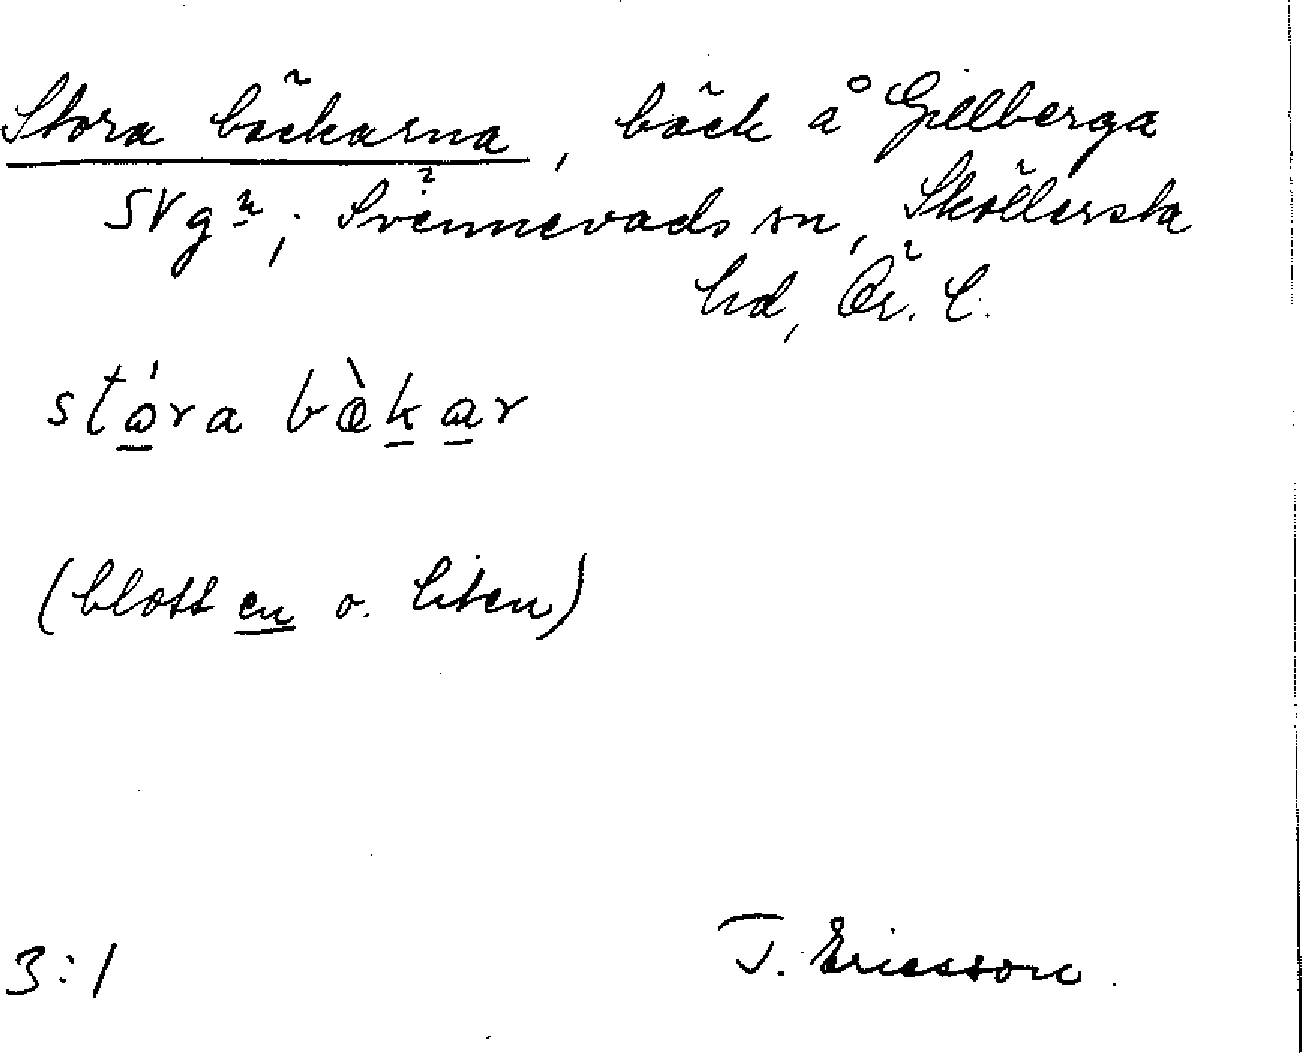 Stora bäckarna, bäck å Gillberga
SVgn; Svennevads sn, Sköllersta
hd, Ör. l.
stóra bækar
(blott en o. liten)
3:1 T. Ericsson.